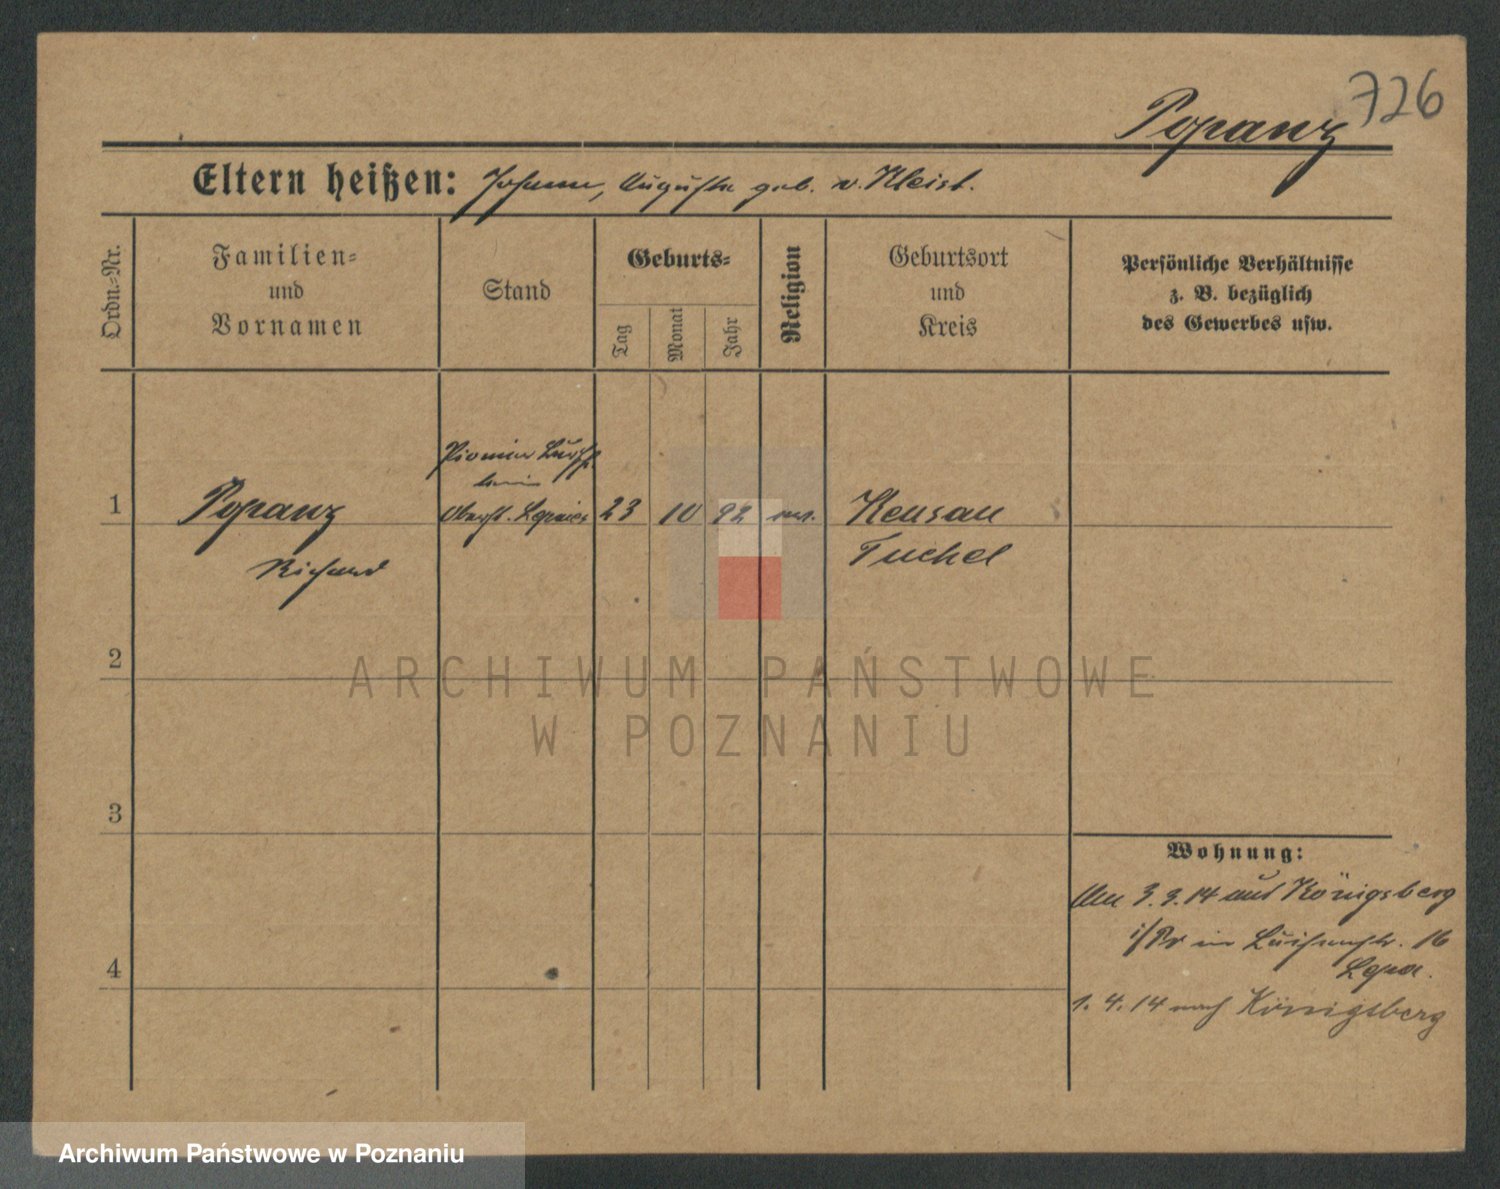 726
Popanz
Eltern heißen: Johann, Auguste geb. v. Kleist.
Ordn.-Nr.
Familien-
und
Vornamen
Stand
Geburts-
Tag
Monat
Jahr
Religion
Geburtsort
und
Kreis
Persönliche Verhältnisse
z. B. bezüglich
des Gewerbes usw.
Pionier
beim
1 Popanz 23 10 92 Keusau
Richard Tuchel
2
3
4
Wohnung:
Am 3.3.14 aus Königsberg
i/Pr in Luisenstr. 16
1.4.14 nach Königsberg
ARCHIWUM PAŃSTWOWE
W POZNANIU
Archiwum Państwowe w Poznaniu